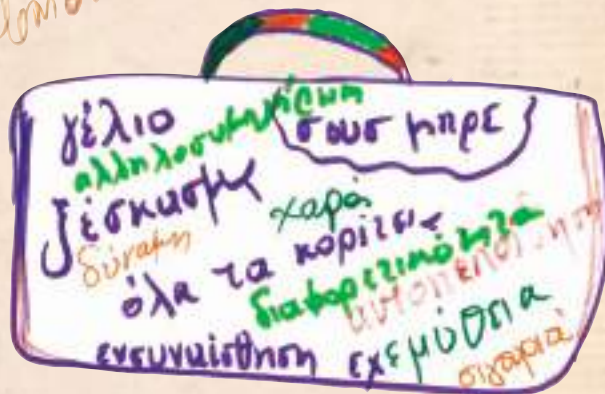 γέλιο
αλληλοσυμπλήρωση
σους μπρε
ξέσκασμα
χαρά
δύναμη
όλα τα κορίτσια
διαφορετικότητα
αυτοπεποίθηση
ενσυναίσθηση εχεμύθεια
σιγουριά